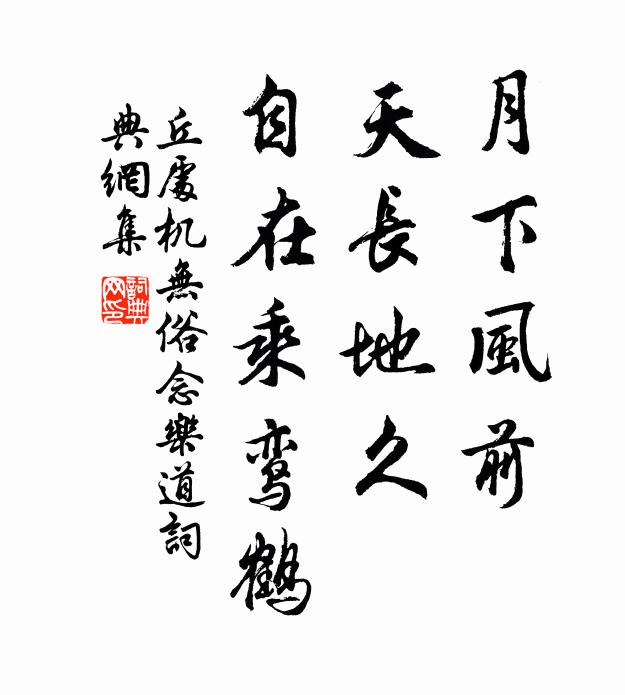 月下風前
天長地久
自在乘鸾鶴
丘處机無俗念樂道詞
典網集
詞典网印